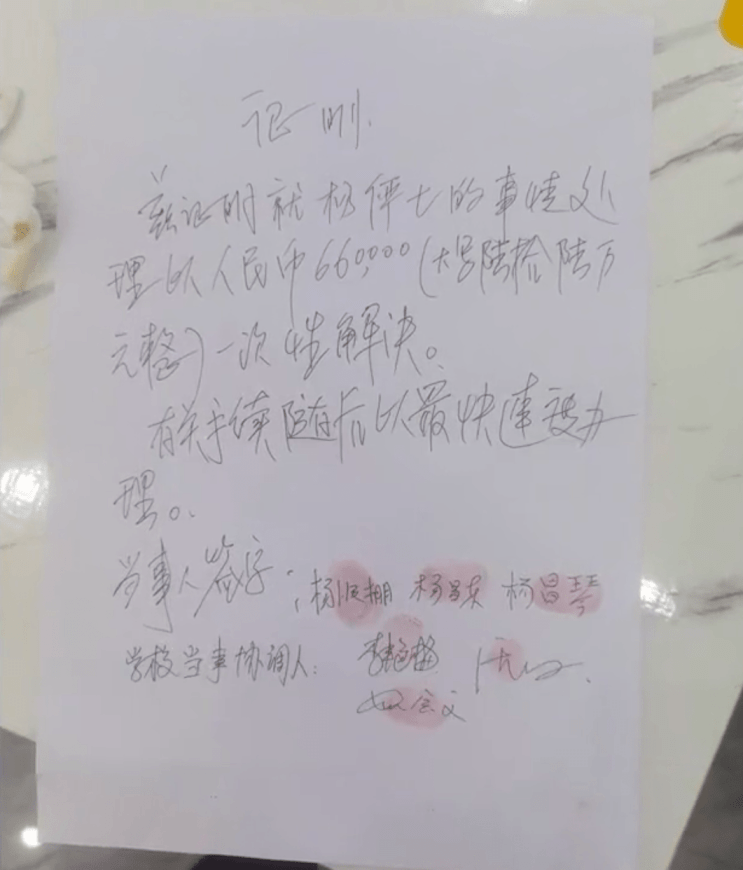 证明
兹证明就杨伊七的事情处
理以人民币660,000(大写陆拾陆万
元整)一次性解决。
有关手续随后以最快速度办
理。
当事人签字: 杨 棚 杨昌东 杨昌琴
学校当事协调人: 李艳梅